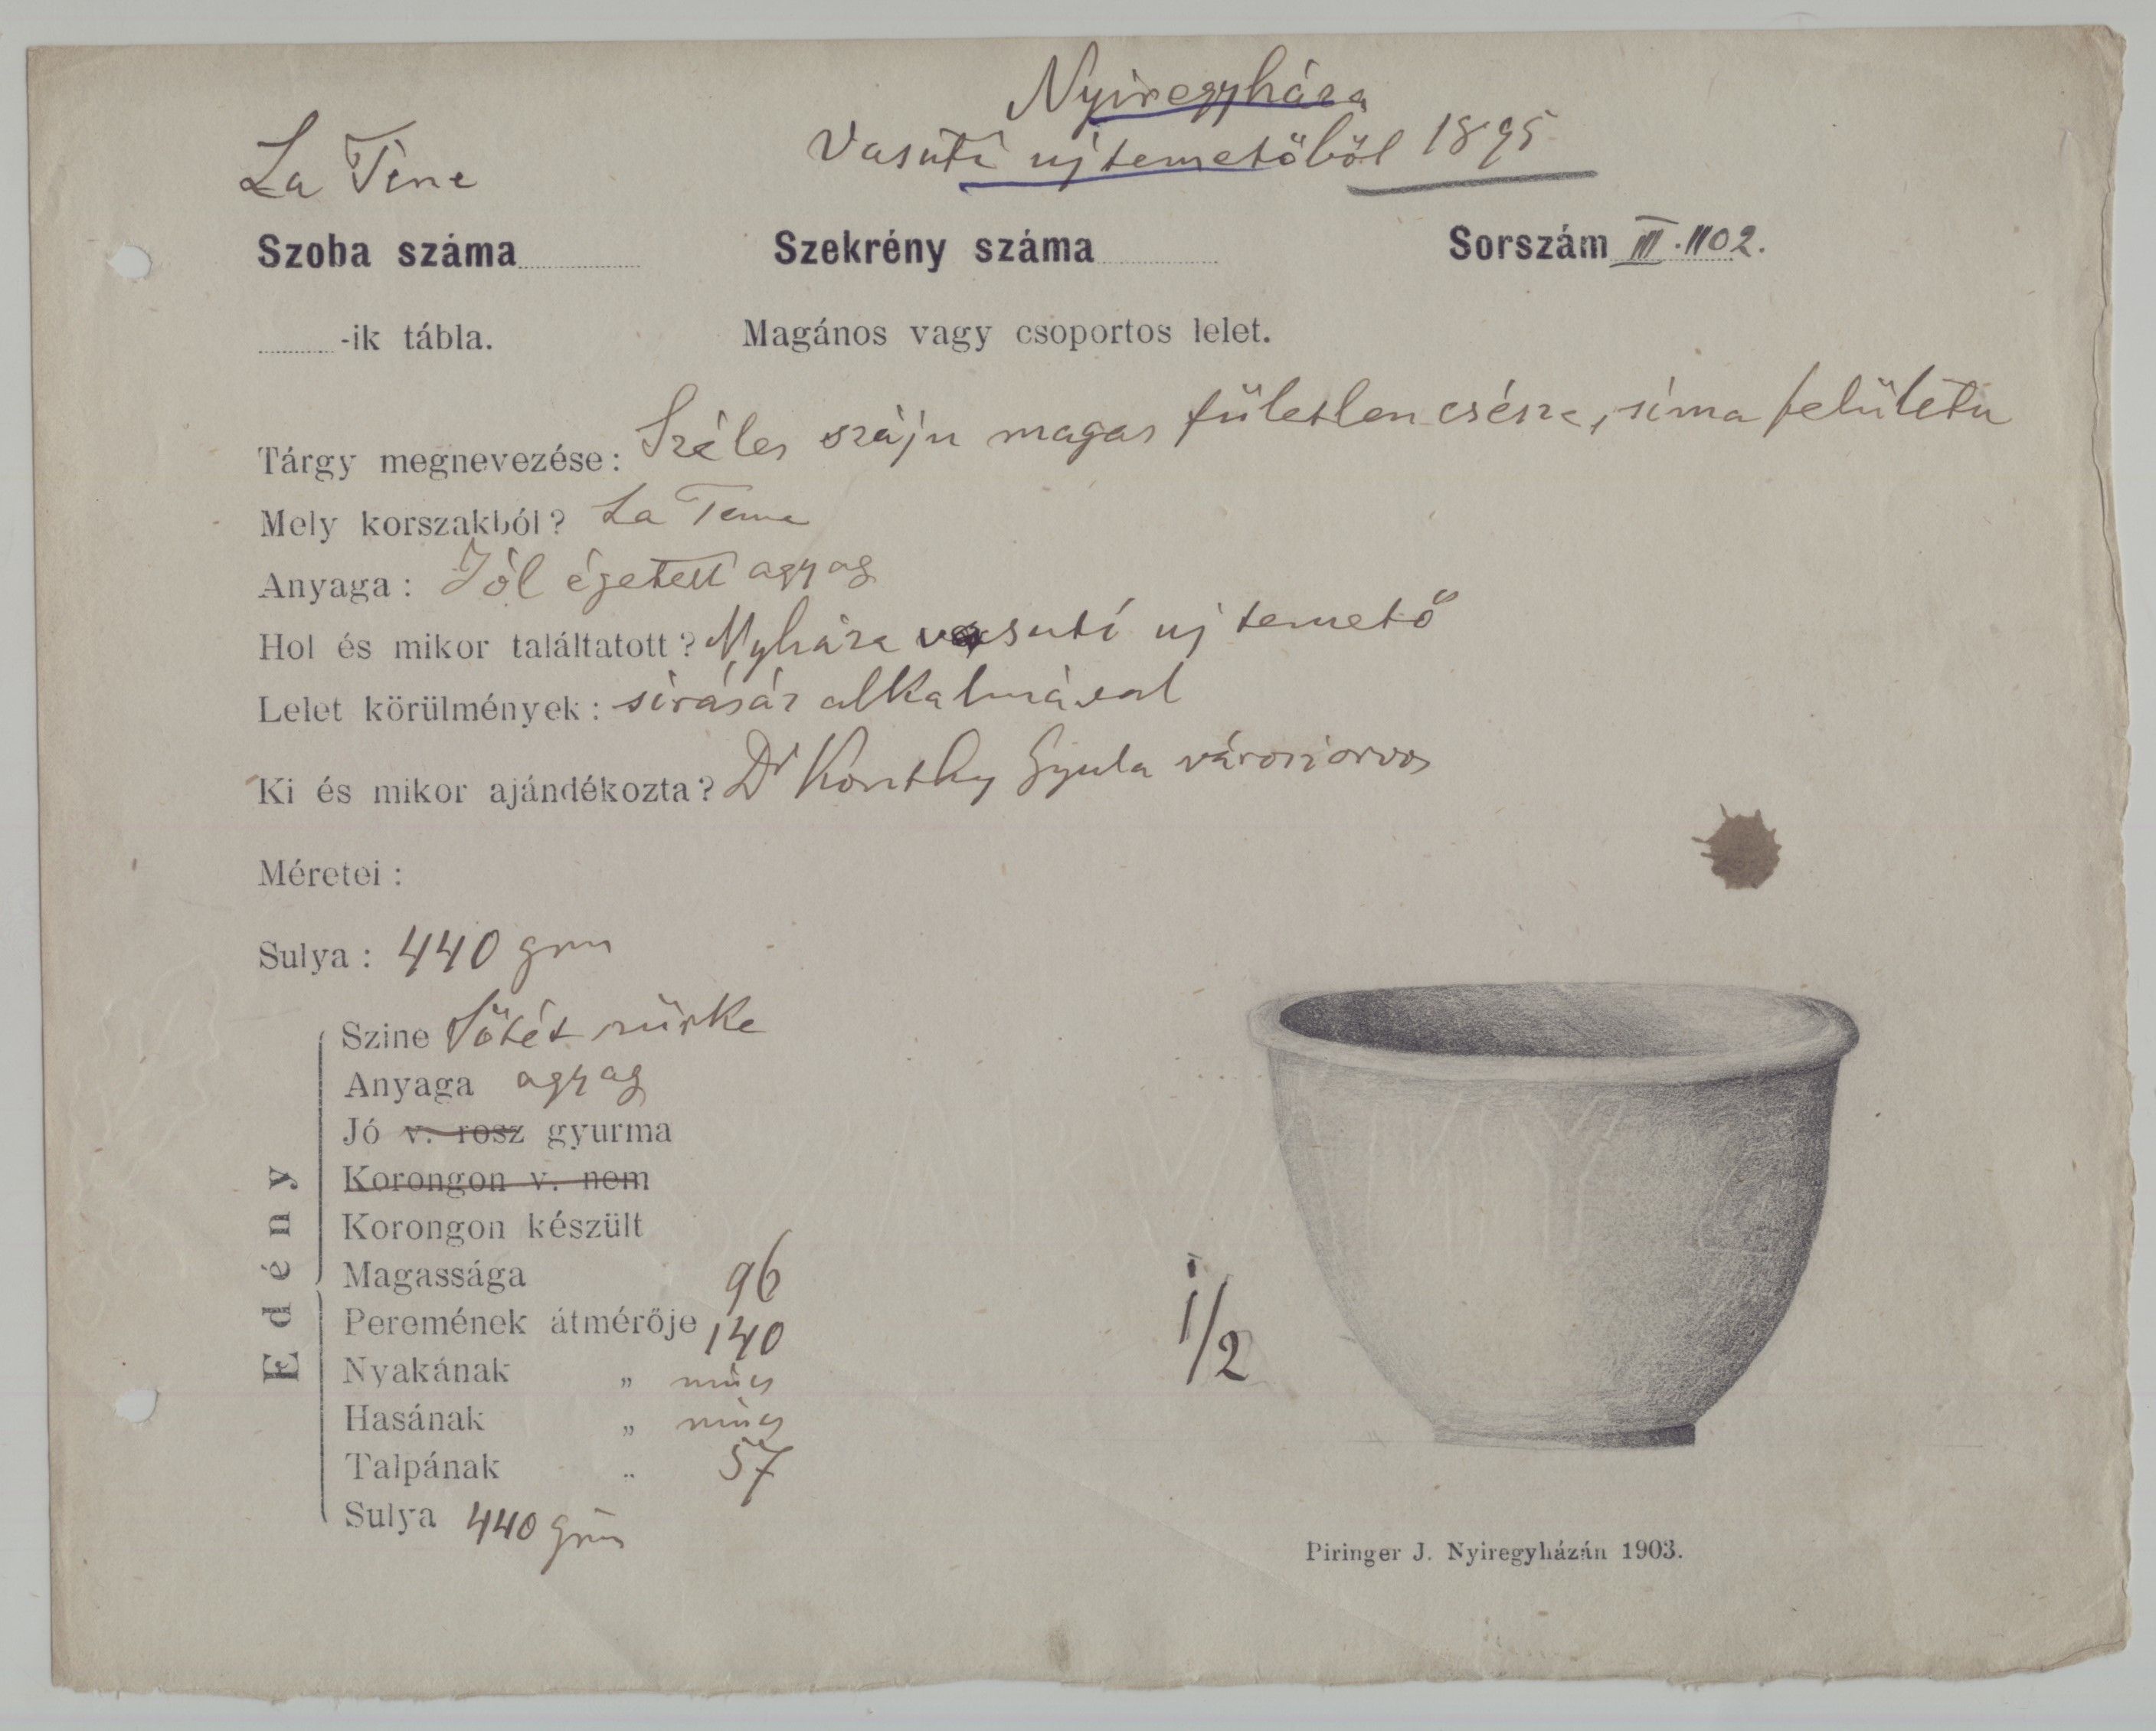 Nyiregyháza
La Téne
Vasúti uj temetőből 1895
Szoba száma
Szekrény száma
Sorszám III. 1102.
-ik tábla.
Magános vagy csoportos lelet.
Tárgy megnevezése: Széles száju magas fületlen csésze, sima felületü
Mely korszakból? La Tene
Anyaga: Jól égetett agyag
Hol és mikor találtatott? Nyháza vasuti uj temető
Lelet körülmények: sirásás alkalmával
Ki és mikor ajándékozta? Dr Gyula városi orvos
Méretei:
Sulya: 440 grm
Edény
Szine Sötét szürke
Anyaga agyag
Jó v. rosz gyurma
Korongon v. nem
Korongon készült
Magassága 96
Peremének átmérője 140
Nyakának „ nincs
Hasának „ nincs
Talpának „ 57
Sulya 440 grm
1/2
Piringer J. Nyiregyházán 1903.